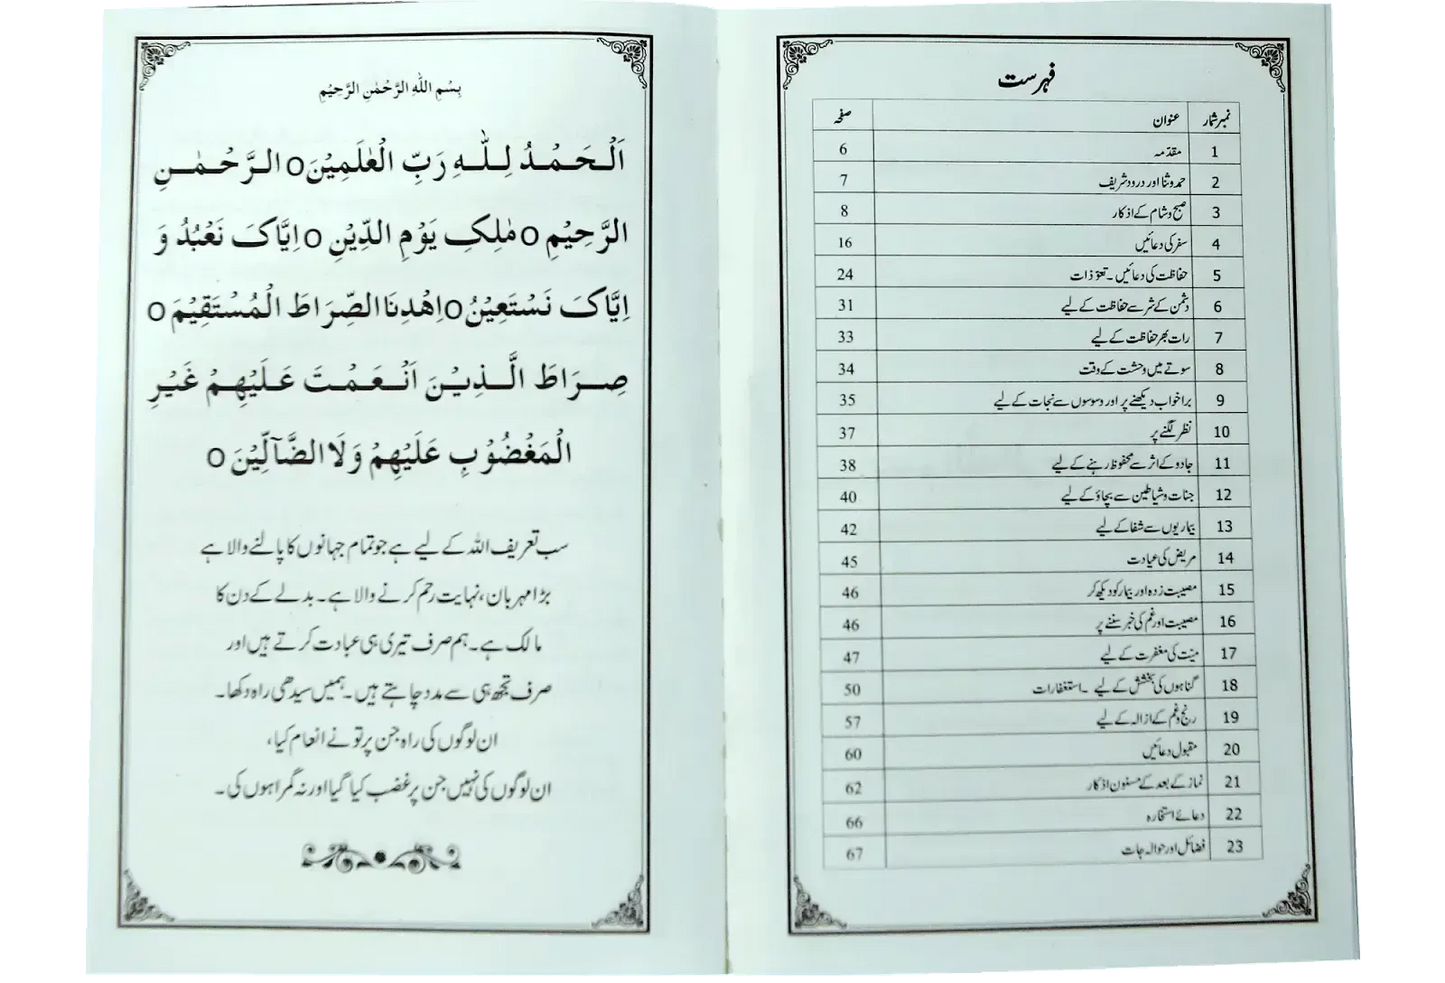 بِسْمِ اللهِ الرَّحْمٰنِ الرَّحِيْمِ
اَلْحَمْدُ لِلّٰهِ رَبِّ الْعٰلَمِيْنَ o الرَّحْمٰنِ
الرَّحِيْمِ o مٰلِكِ يَوْمِ الدِّيْنِ o اِيَّاكَ نَعْبُدُ وَ
اِيَّاكَ نَسْتَعِيْنُ o اِهْدِنَا الصِّرَاطَ الْمُسْتَقِيْمَ o
صِرَاطَ الَّذِيْنَ اَنْعَمْتَ عَلَيْهِمْ غَيْرِ
الْمَغْضُوْبِ عَلَيْهِمْ وَلَا الضَّآلِّيْنَ o
سب تعریف اللہ کے لیے ہے جو تمام جہانوں کا پالنے والا ہے
بڑا مہربان، نہایت رحم کرنے والا ہے۔ بدلے کے دن کا
مالک ہے۔ ہم صرف تیری ہی عبادت کرتے ہیں اور
صرف تجھ ہی سے مدد چاہتے ہیں۔ ہمیں سیدھی راہ دکھا۔
ان لوگوں کی راہ جن پر تو نے انعام کیا،
ان لوگوں کی نہیں جن پر غضب کیا گیا اور نہ گمراہوں کی۔
فہرست
نمبر شمار عنوان صفحہ
1 مقدّمہ 6
2 حمد و ثنا اور درود شریف 7
3 صبح و شام کے اذکار 8
4 سفر کی دعائیں 16
5 حفاظت کی دعائیں۔ تعوّذات 24
6 دشمن کے شر سے حفاظت کے لیے 31
7 رات بھر حفاظت کے لیے 33
8 سوتے میں وحشت کے وقت 34
9 برا خواب دیکھنے پر اور وسوسوں سے نجات کے لیے 35
10 نظر لگنے پر 37
11 جادو کے اثر سے محفوظ رہنے کے لیے 38
12 جنات و شیاطین سے بچاؤ کے لیے 40
13 بیماریوں سے شفا کے لیے 42
14 مریض کی عیادت 45
15 مصیبت زدہ اور بیمار کو دیکھ کر 46
16 مصیبت اور غم کی خبر سننے پر 46
17 میّت کی مغفرت کے لیے 47
18 گناہوں کی بخشش کے لیے ۔ استغفارات 50
19 رنج و غم کے ازالہ کے لیے 57
20 مقبول دعائیں 60
21 نماز کے بعد کے مسنون اذکار 62
22 دعائے استخارہ 66
23 فضائل اور حوالہ جات 67